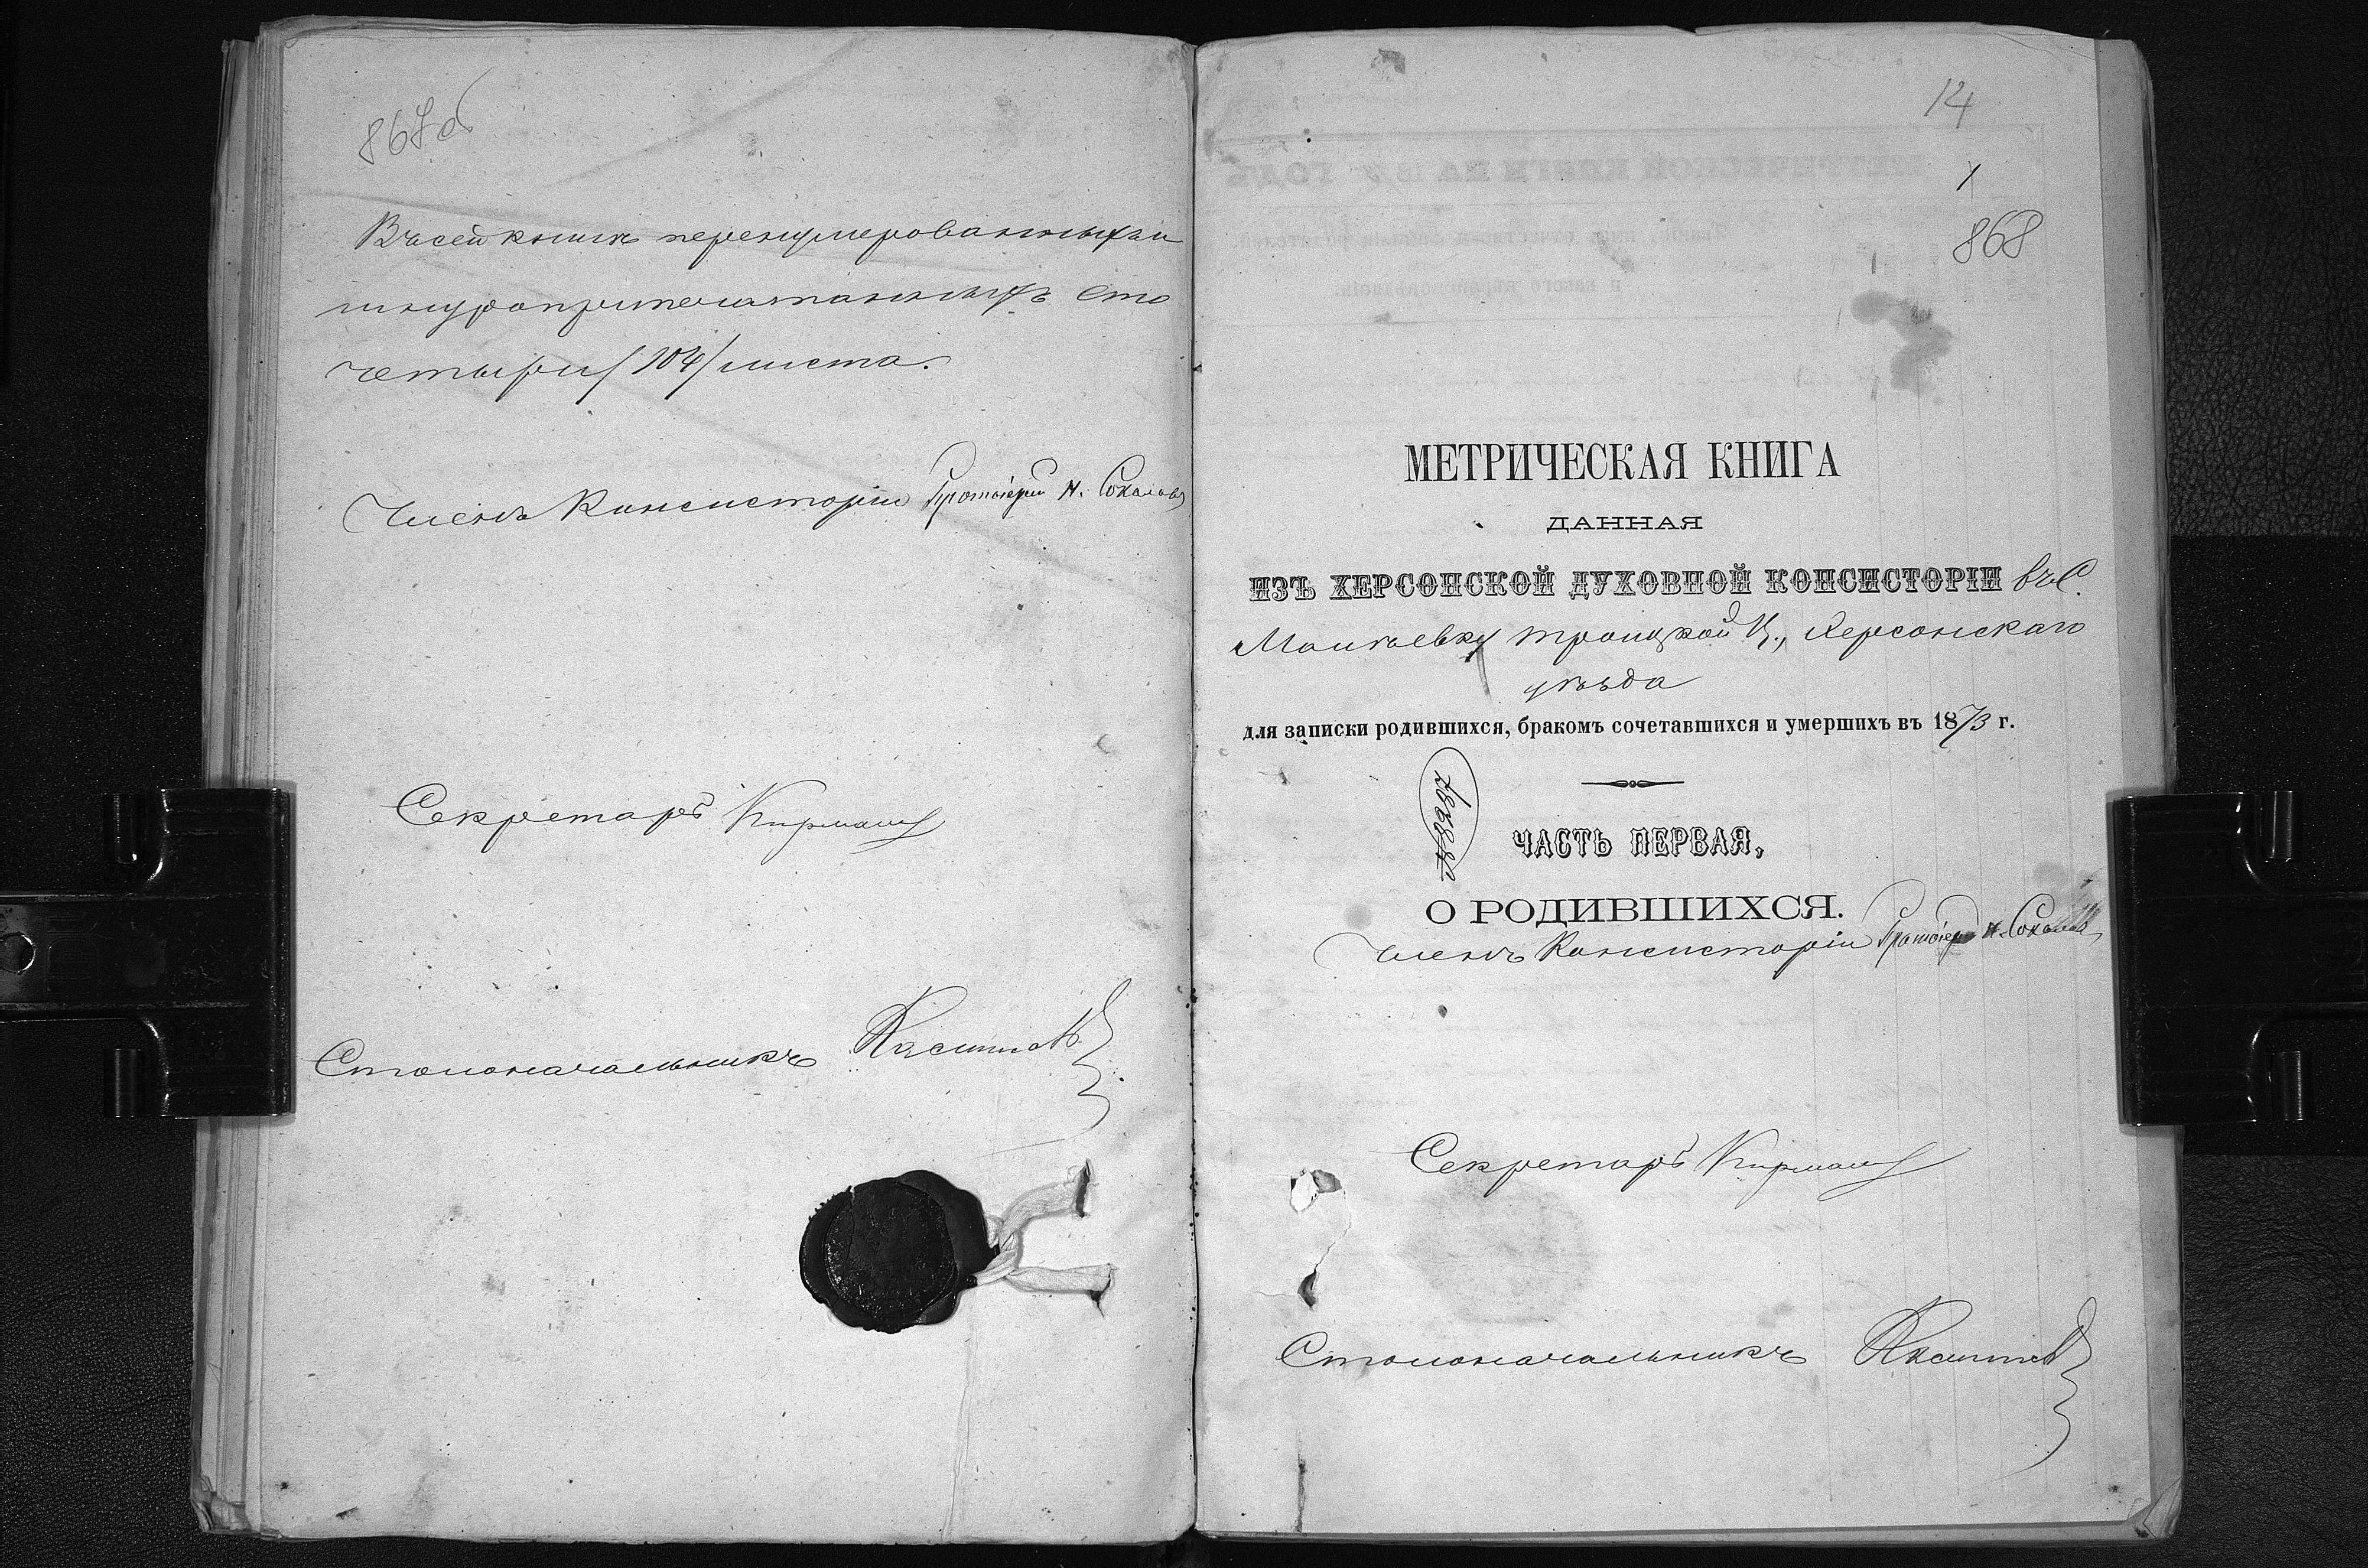 867об
Въ сей книгѣ перенумерованныхъ и
шнуроприпечатанныхъ сто
четыри /104/ листа.
Членъ Консисторіи Протоіерей Н. Соколовъ
Секретарь
Столоначальникъ
14
1
868
МЕТРИЧЕСКАЯ КНИГА
ДАННАЯ
ИЗЪ ХЕРСОНСКОЙ ДУХОВНОЙ КОНСИСТОРІИ въ С.
Троицкой Ц., Херсонскаго
уѣзда
для записки родившихся, бракомъ сочетавшихся и умершихъ въ 1873 г.
№ 8287
ЧАСТЬ ПЕРВАЯ,
О РОДИВШИХСЯ.
Членъ Консисторіи Протоіерей Н. Соколовъ
Секретарь
Столоначальникъ